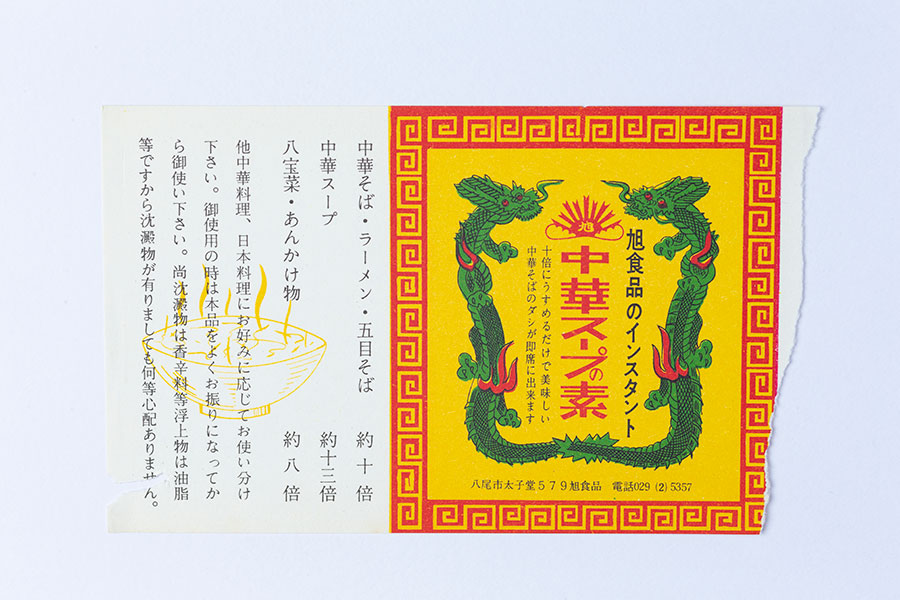 旭食品のインスタント
旭
中華スープの素
十倍にうすめるだけで美味しい
中華そばのダシが即席に出来ます
八尾市太子堂579旭食品 電話029(2)5357
中華そば・ラーメン・五目そば 約十倍
中華スープ 約十三倍
八宝菜・あんかけ物 約八倍
他中華料理、日本料理にお好みに応じてお使い分け
下さい。御使用の時は本品をよくお振りになってか
ら御使い下さい。尚沈澱物は香辛料等浮上物は油脂
等ですから沈澱物が有りましても何等心配ありません。